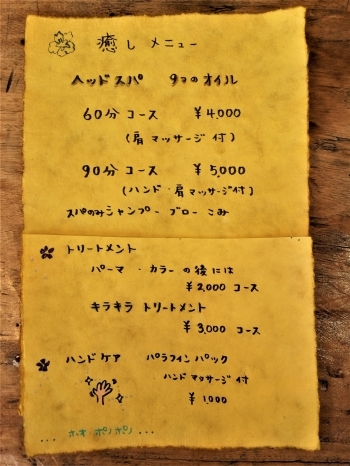 癒し メニュー
ヘッドスパ 9つのオイル
60分 コース ￥4,000
(肩マッサージ付)
90分 コース ￥5,000
(ハンド・肩マッサージ付)
スパのみシャンプー ブロー こみ
トリートメント
パーマ・カラー の後には
￥2,000 コース
キラキラ トリートメント
￥3,000 コース
ハンドケア パラフィンパック
ハンドマッサージ付
￥1,000
...ホ・オ・ポノポノ...